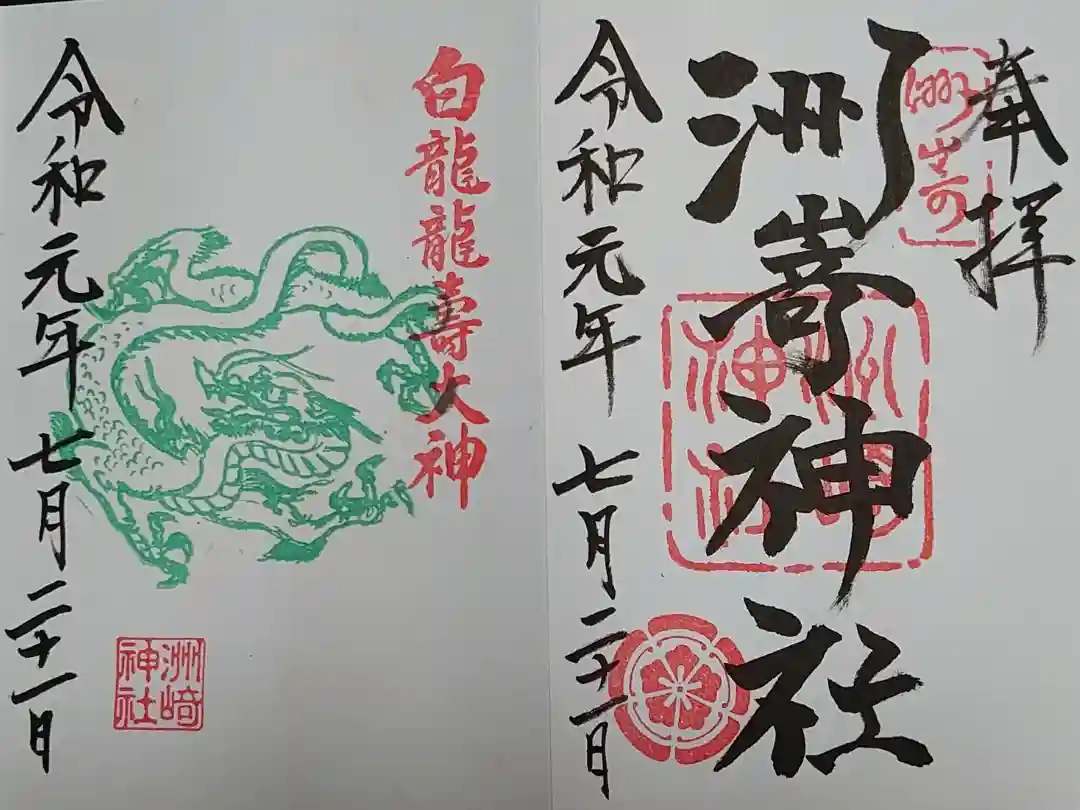 奉拝
洲嵜
洲嵜神社
令和元年七月二十一日
白龍龍壽大神
洲崎神社
令和元年七月二十一日